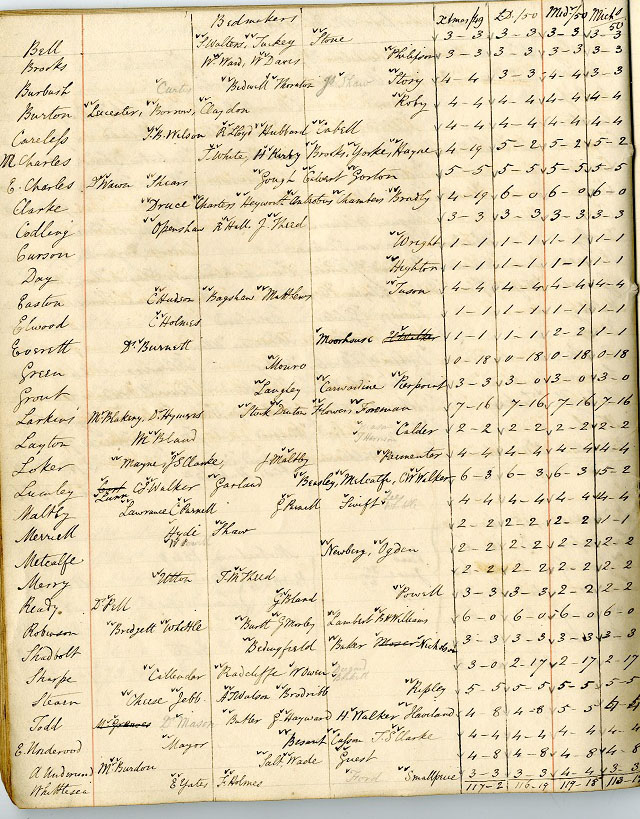 Bedmakers Xtmas/49 LD./50 Mids/50 Mich 50
Bell T. Walters, Tuckey Stone 3-3 3-3 3-3 3-3
Brooks W. Ward, W Davis Philipson 3-3 3-3 3-3 3-3
Burbush Curtis Bidwell Thornton Shaw Story 4-4 3-3 4-4 3-3
Burton Leicester, Borrow, Claydon Roby 4-4 4-4 4-4 4-4
Careless J.B. Wilson R Lloyd Hubbard Cabell 4-4 4-4 4-4 4-4
M Charles T. White, H Kirby Brooks, Yorke, Hayne 4-19 5-2 5-2 5-2
E. Charles Dr Wawn Shears Gough Calvert Gorton 5-5 5-5 5-5 5-5
Clarke Druce Charters Heyworth Chambers Bradly 4-19 6-0 6-0 6-0
Codling Openshaw R Hall J. Theed 3-3 3-3 3-3 3-3
Curson Wright 1-1 1-1 1-1 1-1
Day Heighton 1-1 1-1 1-1 1-1
Easton C Hudson Bagshaw Matthews Tuson 4-4 4-4 4-4 4-4
Elwood C Holmes 1-1 1-1 1-1 1-1
Everett Dr. Burnett Moorhouse H Walker 1-1 1-1 2-2 1-1
Green Monro 0-18 0-18 0-18 0-18
Grout Langley Carwardine Pierpoint 3-3 3-0 3-0 3-0
Larkins Mr Blakeny, Dr Hymers Stock Denton Flowers Foreman 7-16 7-16 7-16 7-16
Layton Mr Bland Calder 2-2 2-2 2-2 2-2
Loker Mayne J S Clarke, J. Maltby Parmenter 4-4 4-4 4-4 4-4
Lumley Lunn C J Walker Garland Beasley, Metcalfe, C W Walker 6-3 6-3 6-3 5-2
Maltby Lawrance C Parnell G Parnell Swift 4-4 4-4 4-4 4-4
Merrell Hyde Shaw 2-2 2-2 2-2 1-1
Metcalfe Newbery, Ogden 2-2 2-2 2-2 2-2
Merry Utton T. M Theed 2-2 2-2 2-2 2-2
Ready Dr Pell G Bland Powell 3-3 3-3 2-2 2-2
Robinson Bridgett Whittle Burtt G Morley Lambert B. Williams 6-0 6-0 6-0 6-0
Shadbolt Bedingfield Baker Moser Nicholson 3-3 3-3 3-3 3-3
Sharpe Callendar Radcliffe W Owen 3-0 2-17 2-17 2-17
Stearn Cheese Jebb A. Watson Brodribb Ripley 5-5 5-5 5-5 5-5
Todd Dr Mason Baker G Hayward H. Walker Haviland 4-8 4-8 5-5 4-4
E. Underwood Mayor Besant Casson J. S Clarke 4-4 4-4 4-4 4-4
A Underwood Mr Burdon Salt, Wade Guest 4-8 4-8 4-8 4-8
Whittlesea E Yates F. Holmes Ford Smallpeice 3-3 3-3 4-4 3-3
117-2 116-19 119-18